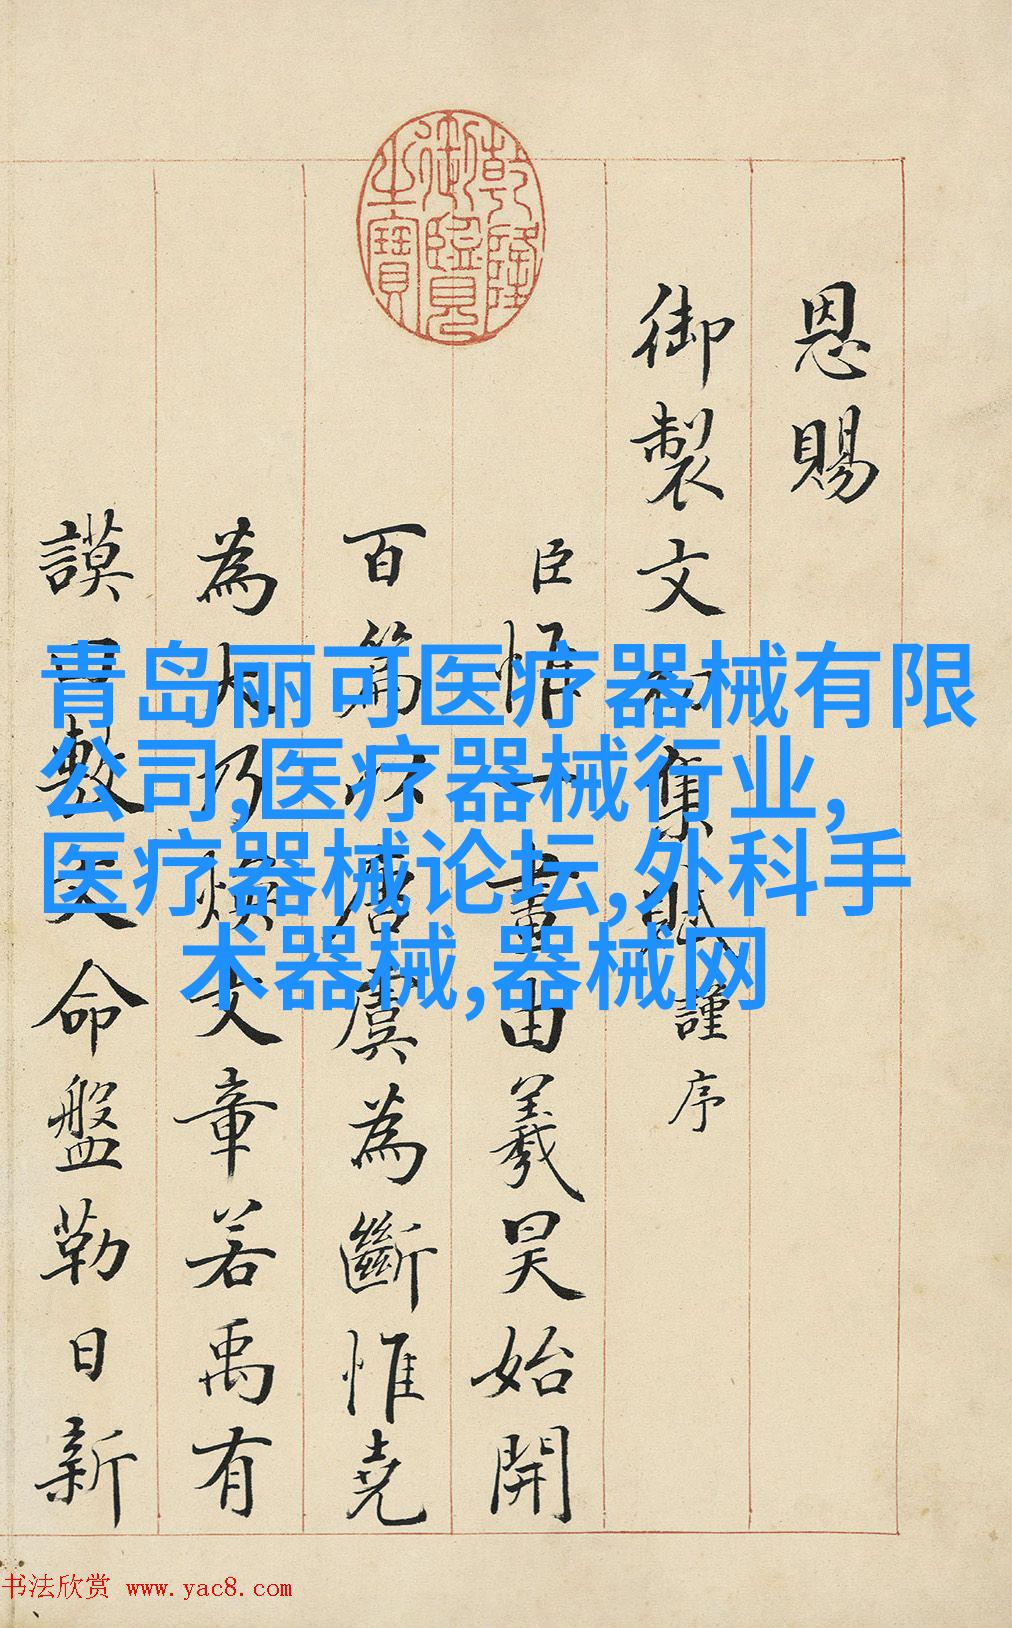 恩賜
御製文初集賦謹序
臣惟一畫由羲昊始開
百篇以唐虞為斷惟堯
為大乃煥文章若禹有
謨曰敷文命盤勒日新
乾隆御覽之寶
青岛丽可医疗器械有限
公司,医疗器械行业,
医疗器械论坛,外科手
术器械,器械网
书法欣赏 www.yac8.com